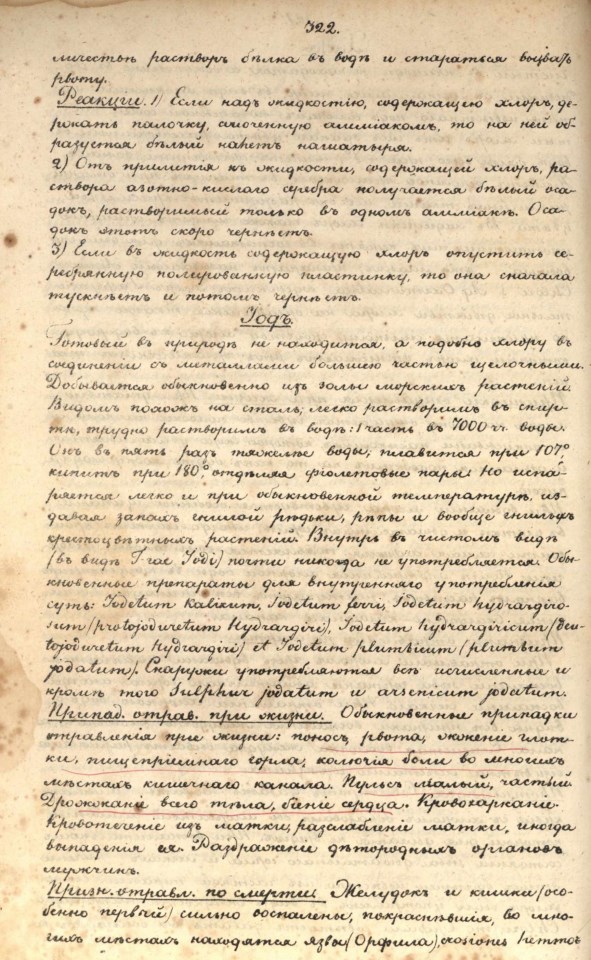 322.
личестью растворъ бѣлка въ водѣ и стараться вызвать
рвоту.
Реакции. 1) Если надъ жидкостію, содержащею хлоръ, де-
ржать палочку, смоченную амміакомъ, то на ней об-
разуется бѣлый налетъ нашатыря.
2) Отъ прилитія къ жидкости, содержащей хлоръ, ра-
створа азотно-кислаго серебра получается бѣлый оса-
докъ, растворимый только въ одномъ амміакѣ. Оса-
докъ этотъ скоро чернѣетъ.
3) Если въ жидкость содержащую хлоръ опустить се-
ребрянную полированную пластинку, то она сначала
тускнѣетъ и потомъ чернѣетъ.
Іодъ.
Готовый въ природѣ не находится, а подобно хлору въ
соединеніи съ металлами большею частью щелочными.
Добывается обыкновенно изъ золы морскихъ растеній.
Видомъ похожъ на сталь, легко растворимъ въ спир-
тѣ, трудно растворимъ въ водѣ: 1 часть въ 7000 чч. воды.
Онъ въ пять разъ тяжелѣе воды, плавится при 107°,
кипитъ при 180°, отдѣляя фіолетовые пары. Но испа-
ряется легко и при обыкновенной температурѣ, из-
давая запахъ гнилой рѣдьки, рѣпы и вообще гнилыхъ
крестоцвѣтныхъ растеній. Внутрь въ чистомъ видѣ
(въ видѣ T-rae Jodi) почти никогда не употребляется. Обы-
кновенные препараты для внутренняго употребленія
суть: Jodetum Kalicum, Jodetum ferri, Jodetum hydrargiro-
sum (protojoduretum Hydrargiri), Jodetum hydrargiricum (deu-
tojoduretum Hydrargiri) et Jodetum plumbicum (plumbum
jodatum). Снаружи употребляются всѣ исчисленные и
кромѣ того Sulphur jodatum и arsenicum jodatum.
Припад. отрав. при жизни. Обыкновенные припадки
отравленія при жизни: поносъ, рвота, жженіе глот-
ки, пищепріемнаго горла, колючія боли во многихъ
мѣстахъ кишечнаго канала. Пульсъ малый, частый.
Дрожжаніе всего тѣла, біеніе сердца. Кровохарканіе.
Кровотеченіе изъ матки, разслабленіе матки, иногда
выпаденія ея. Раздраженіе дѣтородныхъ органовъ
мужчинъ.
Призн. отравл. по смерти: Желудокъ и кишки (осо-
бенно первый) сильно воспалены, покраснѣвшія, во мно-
гихъ мѣстахъ находятся язвы (Орфила), erosiones